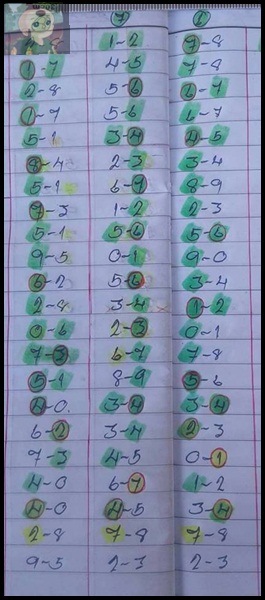 7 6
1-2 7-8
1-7 4-5 7-8
2-8 5-6 6-7
1-7 5-6 6-7
5-1 3-4 4-5
8-4 2-3 3-4
5-1 6-7 8-9
7-3 1-2 2-3
5-1 5-6 5-6
9-5 0-1 9-0
6-2 5-6 3-4
2-8 3-4 1-2
0-6 2-3 0-1
7-3 6-7 7-8
5-1 8-9 5-6
4-0. 3-4 3-4
6-2 3-4 2-3
7-3 4-5 0-1
4-0 6-7 1-2
4-0 4-5 3-4
2-8 7-8 7-8
9-5 2-3 2-3